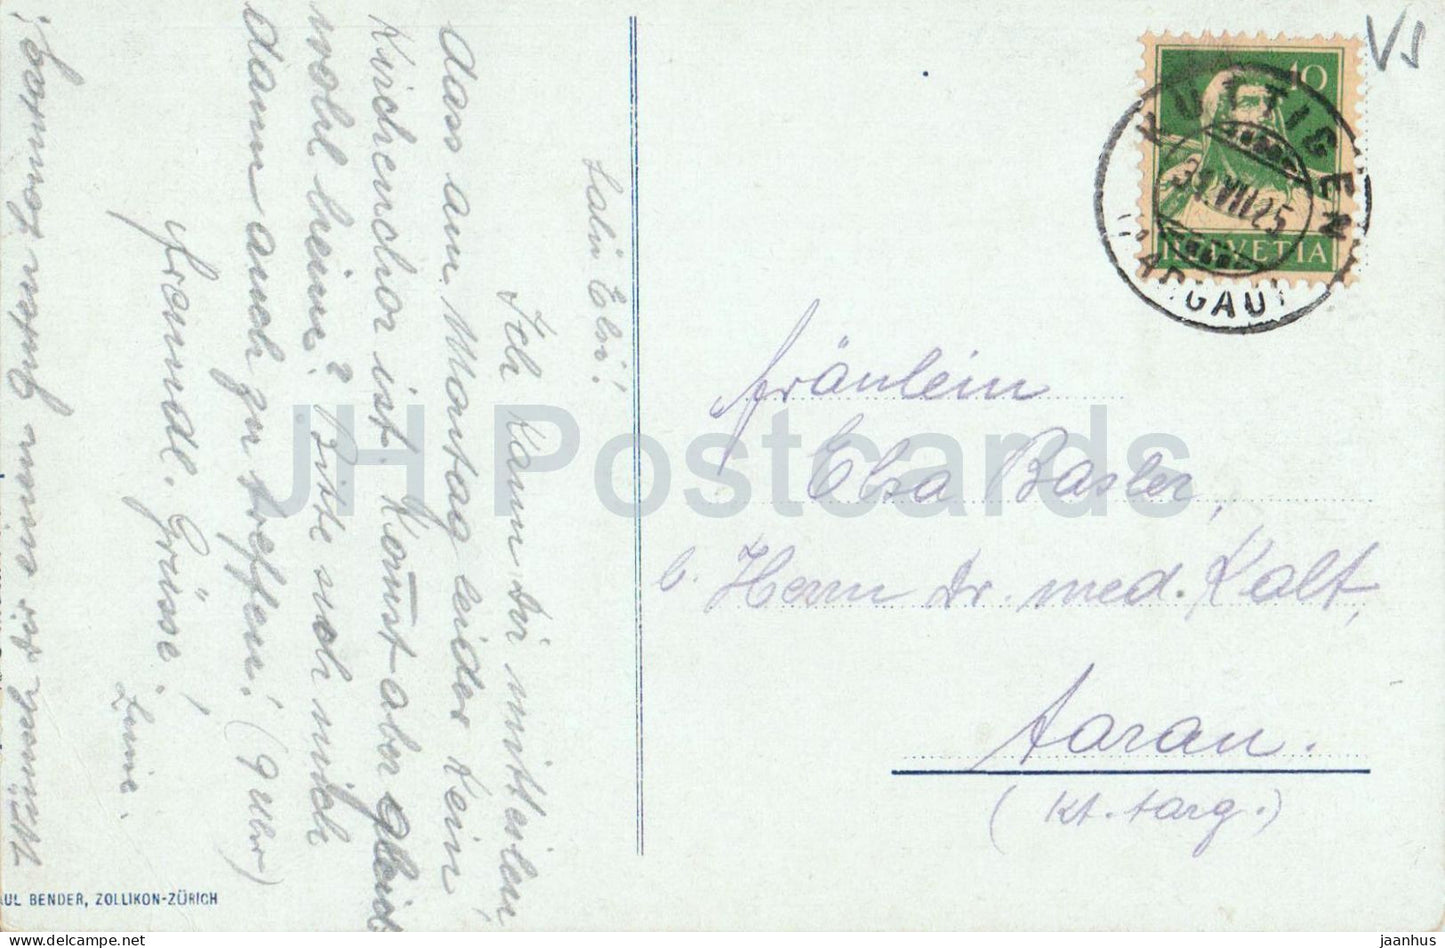 Lalu Elsi!
Ich kann Dir mitteilen,
dass am Montag leider kein
Kirchenchor ist. Komst aber gleich
wohl heim? Bitte such mich
dann auch zu treffen! (9 Uhr)
Freundl. Grüsse!
Wünscht Dir einen guten Sonntag!
AUL BENDER, ZOLLIKON-ZÜRICH
Fräulein
Elsa Basler,
b. Herrn Dr. med. Kalt,
Aarau.
(Kt. Aarg.)
VS
10
HELVETIA
KÜTTIGEN
31.VII.25
(AARGAU)
JH Postcards
jaanhus
delcampe.net